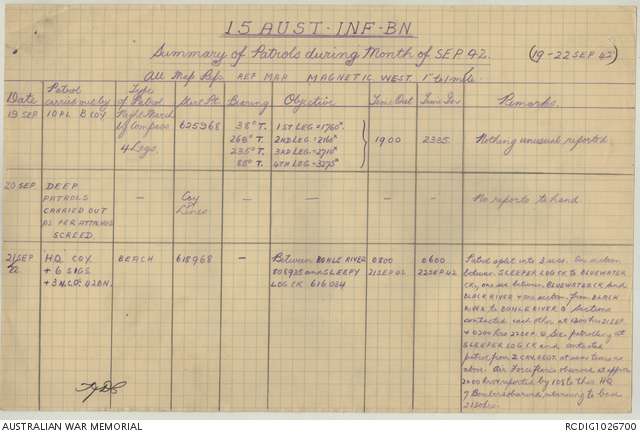 15 AUST-INF-BN
Summary of Patrols during Month of SEP 42. (19-22 SEP 42)
All Map Refs REF MAP MAGNETIC WEST. 1" to 1 mile.
Date Patrol carried out by Type of Patrol Start Pt. Bearing Objective Time Out Time In Remarks
19 SEP 10 PL B COY Night March by Compass 4 Legs. 625968 38° T. 1ST LEG = 1760ˣ
268° T. 2ND LEG = 2160ˣ
235° T. 3RD LEG = 2710ˣ
88° T. 4TH LEG = 3275ˣ
1900 2335 Nothing unusual reported.
20 SEP DEEP PATROLS CARRIED OUT AS PER ATTACHED SCREED. — Coy Lines — — — — No reports to hand
21 SEP 22 HQ COY + 6 SIGS + 3 N.C.O's 42 BN. BEACH 618968 — Between BOHLE RIVER 808935 and SLEEPY LOG CK 616034 0800 21 SEP 42 0600 22 SEP 42
Patrol split into 3 secs. One section
between SLEEPER LOG CK to BLUEWATER
CK, one sec between BLUEWATER CK and
BLACK RIVER + one section from BLACK
RIVER to BOHLE RIVER. Sections
contacted each other at 1200 hrs 21 SEP
+ 0200 hrs 22 SEP. Sec patrolling at
SLEEPER LOG CK and contacted
patrol from 2 CAV. REGT. at same time as
above. Air Force flares observed at approx
2000 hrs + reported by 108 to this HQ
7 Bombers observed returning to base
AUSTRALIAN WAR MEMORIAL RCDIG1026700